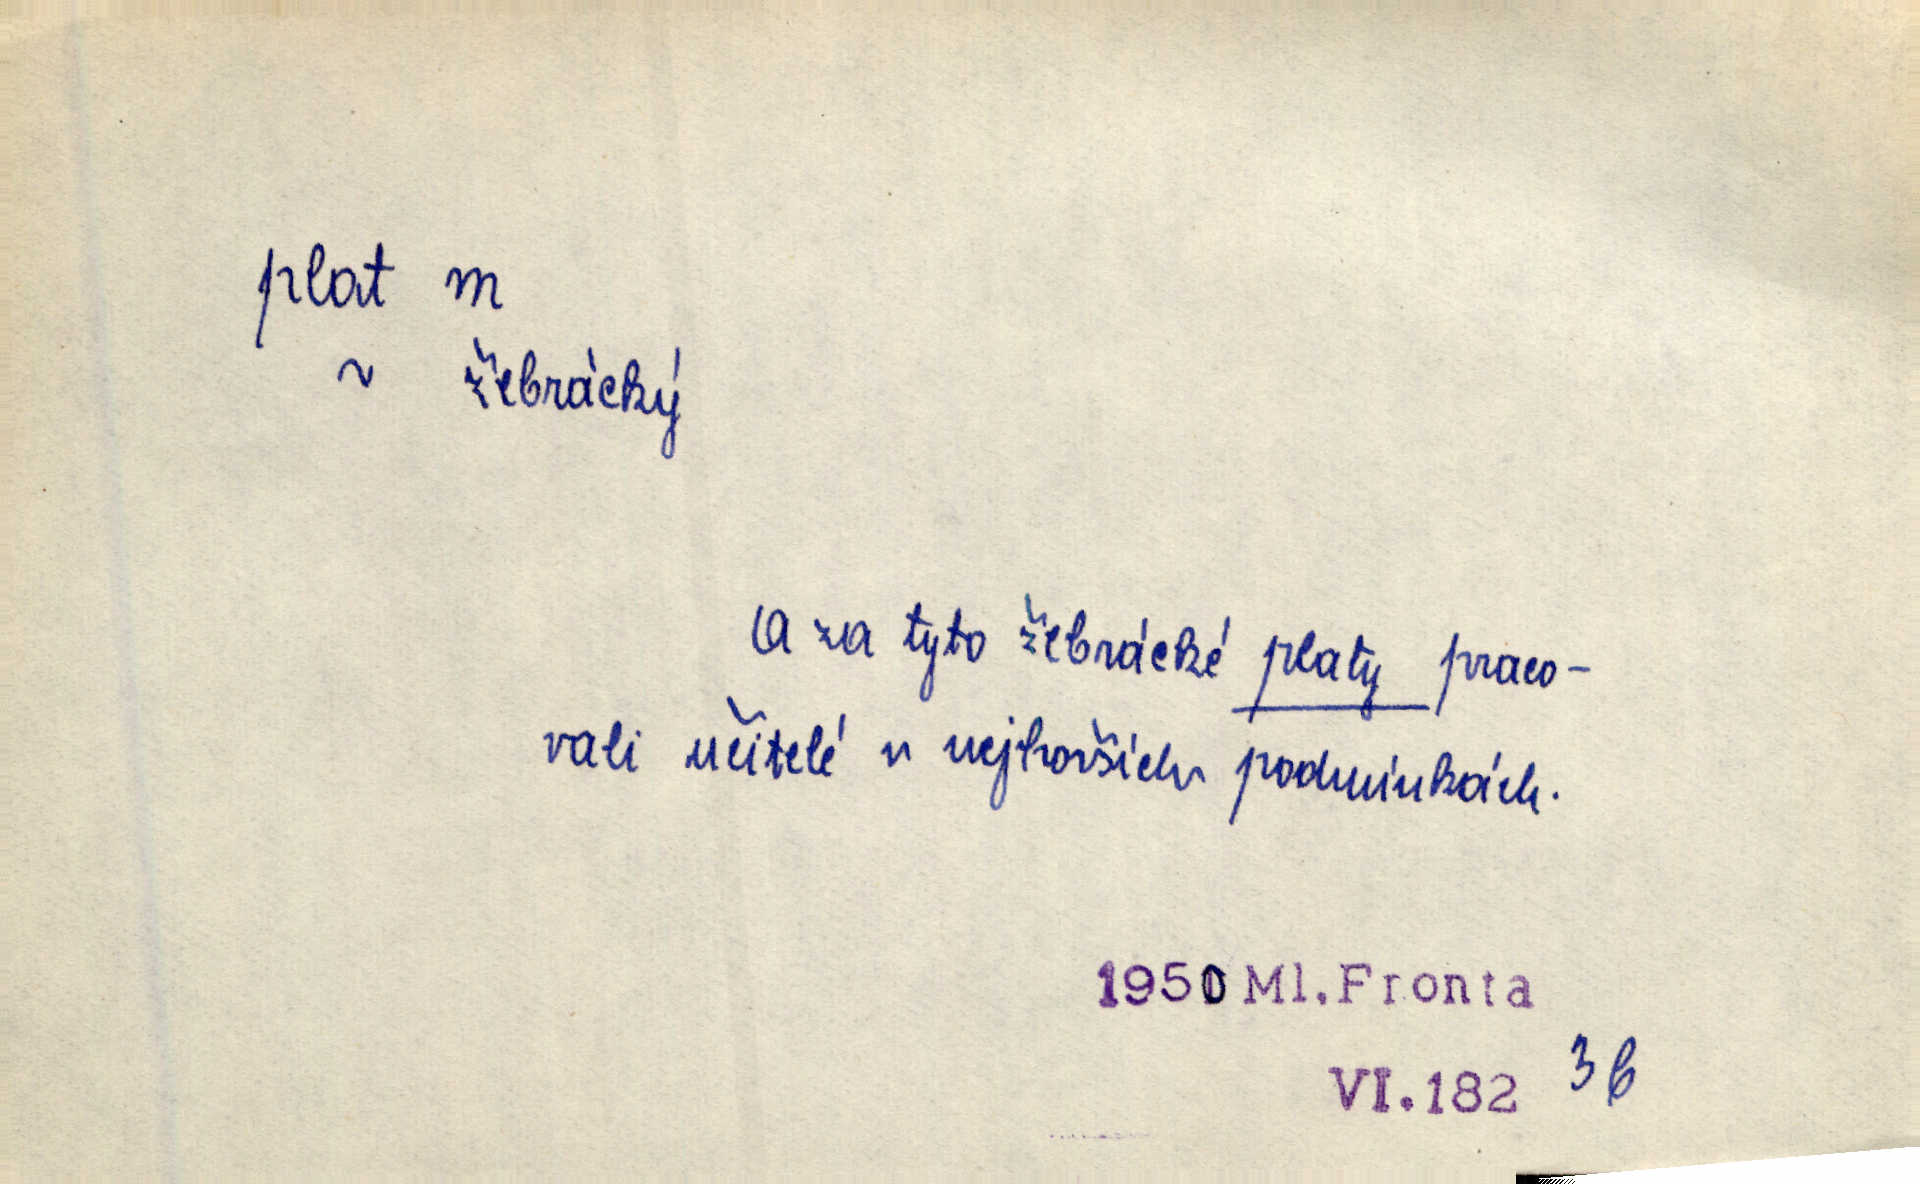 plat m
~ žebrácký
A za tyto žebrácké platy praco-
vali učitelé v nejhorších podmínkách.
1950 Ml.Fronta
VI.182 3b